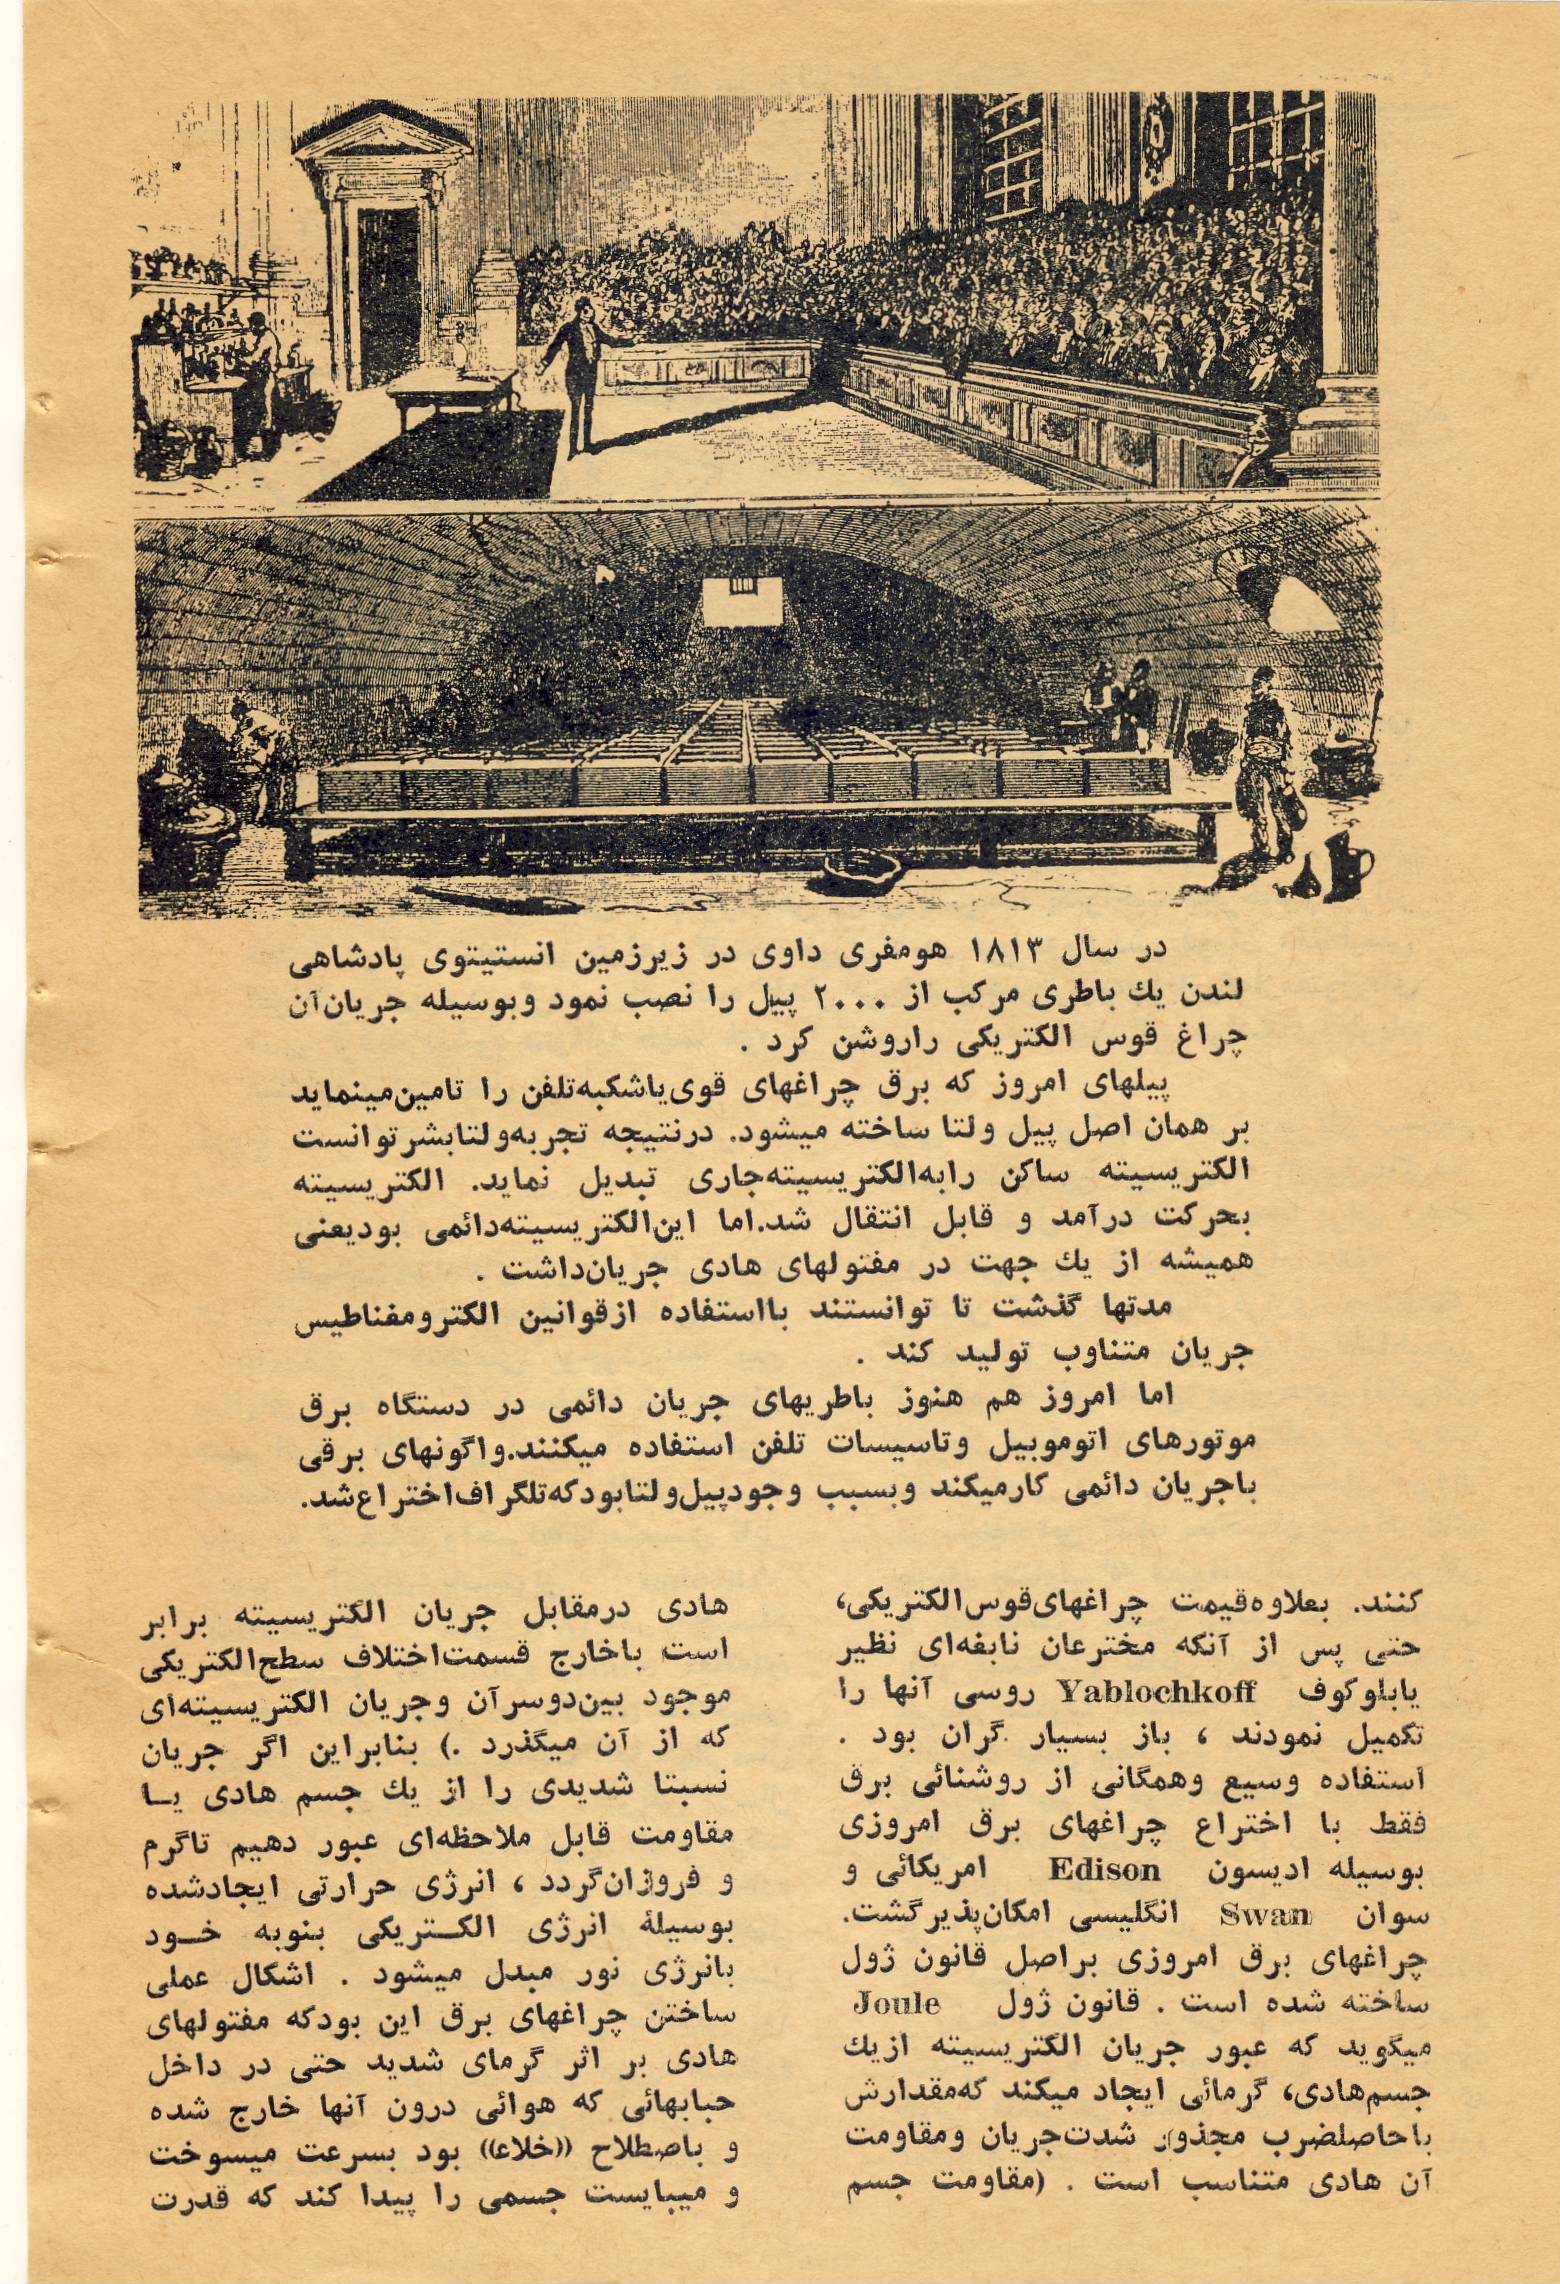 در سال ۱۸۱۳ هومفری داوی در زیرزمین انستیتوی پادشاهی
لندن یك باطری مرکب از ۲۰۰۰ پیل را نصب نمود وبوسیله جریان‌آن
چراغ قوس الکتریکی راروشن کرد .
پیلهای امروز که برق چراغهای قوی‌یاشکبه‌تلفن را تامین‌مینماید
بر همان اصل پیل ولتا ساخته میشود. درنتیجه تجربه‌ولتابشرتوانست
الکتریسیته ساکن رابه‌الکتریسیته‌جاری تبدیل نماید. الکتریسیته
بحرکت درآمد و قابل انتقال شد.اما این‌الکتریسیته‌دائمی بودیعنی
همیشه از یك جهت در مفتولهای هادی جریان‌داشت .
مدتها گذشت تا توانستند بااستفاده ازقوانین الکترومغناطیس
جریان متناوب تولید کند .
اما امروز هم هنوز باطریهای جریان دائمی در دستگاه برق
موتورهای اتوموبیل وتاسیسات تلفن استفاده میکنند.واگونهای برقی
باجریان دائمی کارمیکند وبسبب وجودپیل‌ولتابودکه‌تلگراف‌اختراع‌شد.
کنند. بعلاوه‌قیمت چراغهای‌قوس‌الکتریکی،
حتی پس از آنکه مخترعان نابغه‌ای نظیر
یابلوکوف Yablochkoff روسی آنها را
تکمیل نمودند ، باز بسیار گران بود .
استفاده وسیع وهمگانی از روشنائی برق
فقط با اختراع چراغهای برق امروزی
بوسیله ادیسون Edison امریکائی و
سوان Swan انگلیسی امکان‌پذیرگشت.
چراغهای برق امروزی براصل قانون ژول
ساخته شده است . قانون ژول Joule
میگوید که عبور جریان الکتریسیته ازیك
جسم‌هادی، گرمائی ایجاد میکند که‌مقدارش
باحاصلضرب مجذور شدت‌جریان ومقاومت
آن هادی متناسب است . (مقاومت جسم
هادی درمقابل جریان الکتریسیته برابر
است باخارج قسمت‌اختلاف سطح‌الکتریکی
موجود بین‌دوسرآن وجریان الکتریسیته‌ای
که از آن میگذرد .) بنابراین اگر جریان
نسبتا شدیدی را از یك جسم هادی یـا
مقاومت قابل ملاحظه‌ای عبور دهیم تاگرم
و فروزان‌گردد ، انرژی حرارتی ایجادشده
بوسیلهٔ انرژی الکـتریکی بنوبه خـود
بانرژی نور مبدل میشود . اشکال عملی
ساختن چراغهای برق این بودکه مفتولهای
هادی بر اثر گرمای شدید حتی در داخل
حبابهائی که هوائی درون آنها خارج شده
و باصطلاح ((خلاء)) بود بسرعت میسوخت
و میبایست جسمی را پیدا کند که قدرت